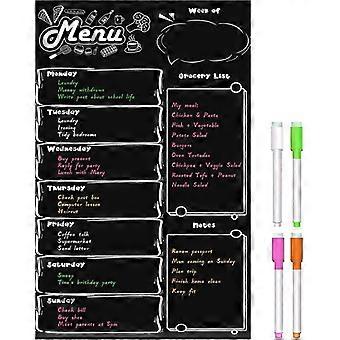 Menu
Week of
Monday
Laundry
Money withdrawn
Write post about school life
Tuesday
Laundry
Ironing
Tidy bedrooms
Wednesday
Buy present
Reply for party
Lunch with Mary
Thursday
Check post box
Computer lesson
Haircut
Friday
Coffee talk
Supermarket
Sand letter
Saturday
Sweep
Tina's birthday party
Sunday
Check bill
Buy shoe
Meet parents at 5pm
Grocery List
My meal:
Chicken & Pasta
Pink + Vegetable
Potato Salad
Burgers
Oven Tostadas
Chickpea + Veggie Salad
Roasted Tofu + Peanut
Noodle Salad
Notes
Renew passport
Man coming on Sunday
Plan trip
Finish home clean
Keep fit